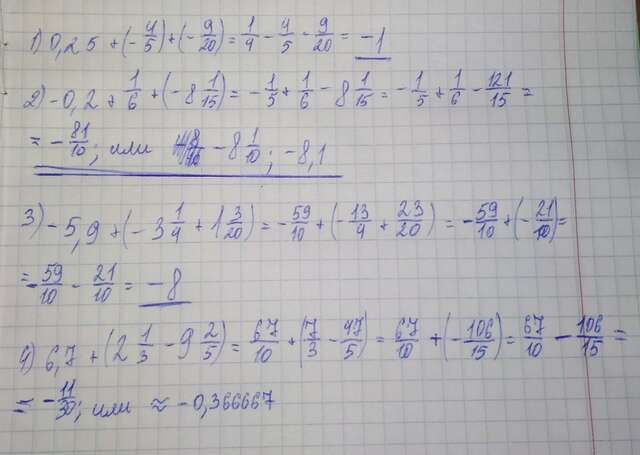 1) 0,25 + (-4/5) + (-9/20) = 1/4 - 4/5 - 9/20 = -1
2) -0,2 + 1/6 + (-8 1/15) = -1/5 + 1/6 - 8 1/15 = -1/5 + 1/6 - 121/15 =
= -81/10; или -8 1/10; -8,1
3) -5,9 + (-3 1/4 + 1 3/20) = -59/10 + (-13/4 + 23/20) = -59/10 + (-21/10) =
= -59/10 - 21/10 = -8
4) 6,7 + (2 1/3 - 9 2/5) = 67/10 + (7/3 - 47/5) = 67/10 + (-106/15) = 67/10 - 106/15 =
= -11/30; или ≈ -0,366667